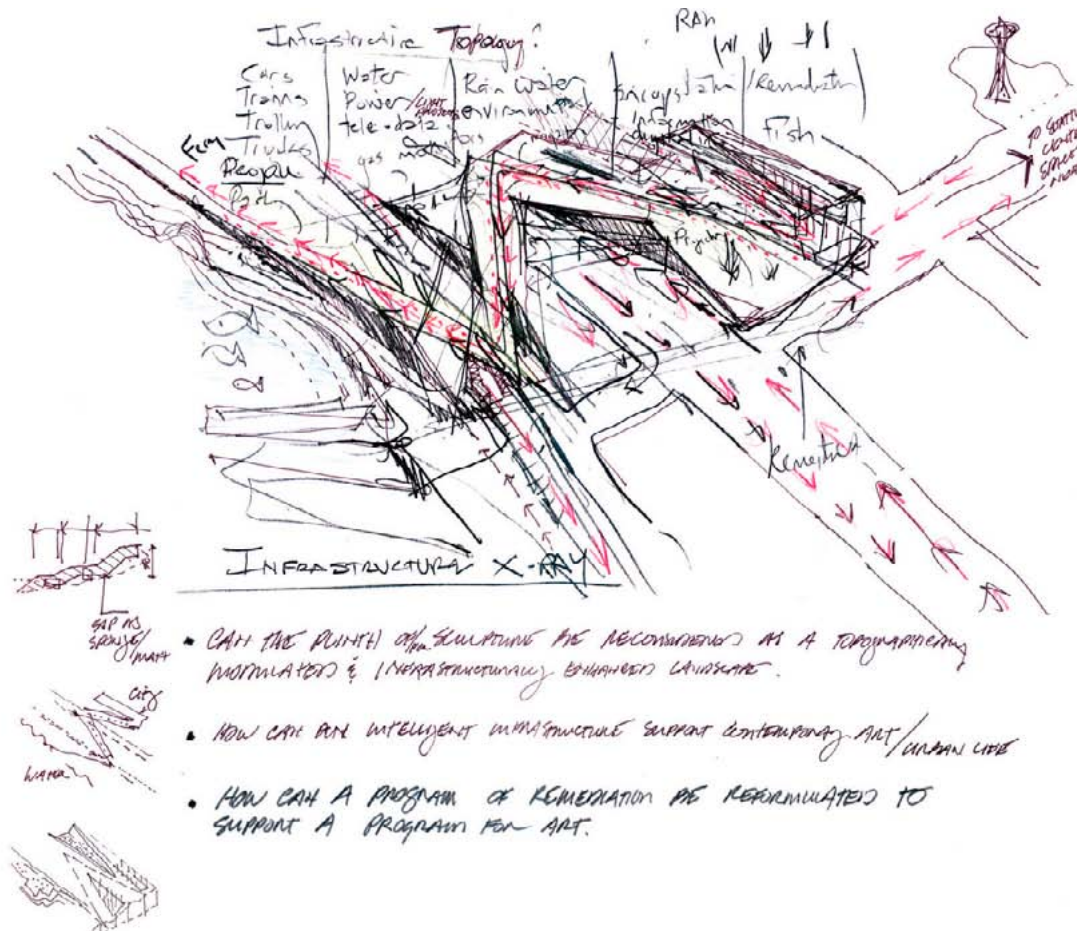 Infrastructure Topology?
Cars
Trains
Trolley
Trucks
People
Water
Power/
tele-data
gas
Rain Water
environmental
Information
/Remediation
Fish
Ferry
TO SEATTLE
CENTER
SPACE
INFRASTRUCTURE X-RAY
SPONGE/
City
WATER
• CAN THE PLINTH OF/for SCULPTURE BE RECONSIDERED AS A TOPOGRAPHICALLY
MODULATED & INFRASTRUCTURALLY ENHANCED LANDSCAPE.
• HOW CAN AN INTELLIGENT INFRASTRUCTURE SUPPORT CONTEMPORARY ART/URBAN LIFE
• HOW CAN A PROGRAM OF REMEDIATION BE REFORMULATED TO
SUPPORT A PROGRAM FOR ART.